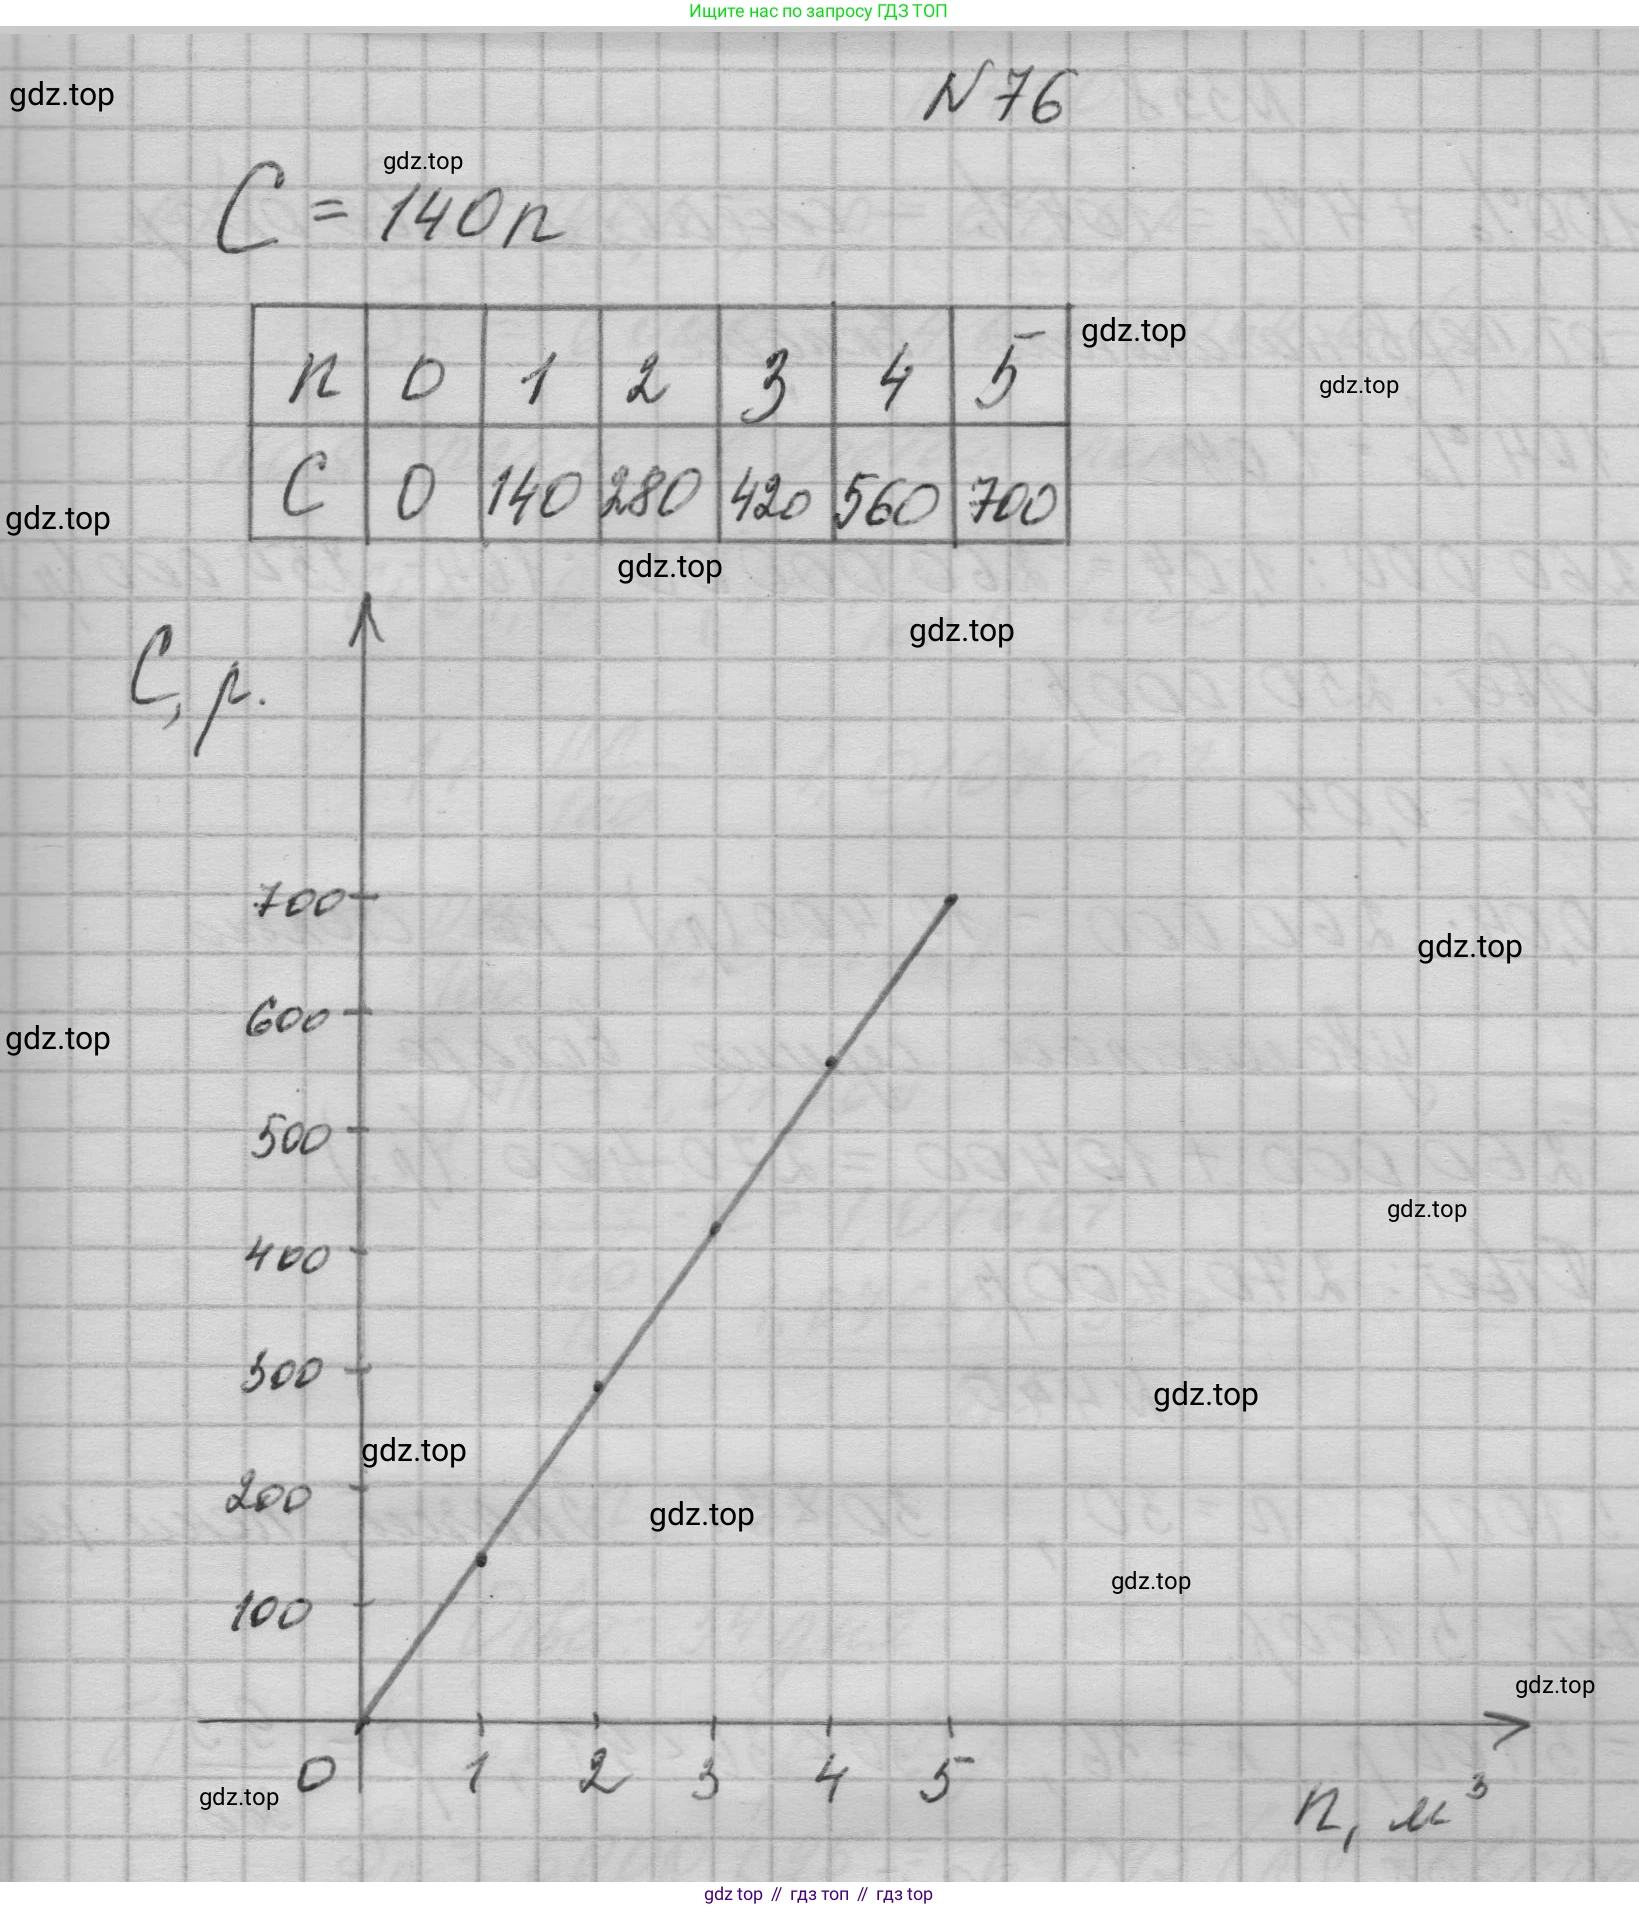 Ищите нас по запросу ГДЗ ТОП
N76
gdz.top
gdz.top
C = 140n
gdz.top
n 0 1 2 3 4 5
gdz.top
C 0 140 280 420 560 700
gdz.top
gdz.top
gdz.top
C, р.
700
gdz.top
600
gdz.top
500
gdz.top
400
300
gdz.top
gdz.top
200
gdz.top
gdz.top
100
gdz.top
0 1 2 3 4 5
gdz.top
n, м³
gdz top // гдз топ // гдз top